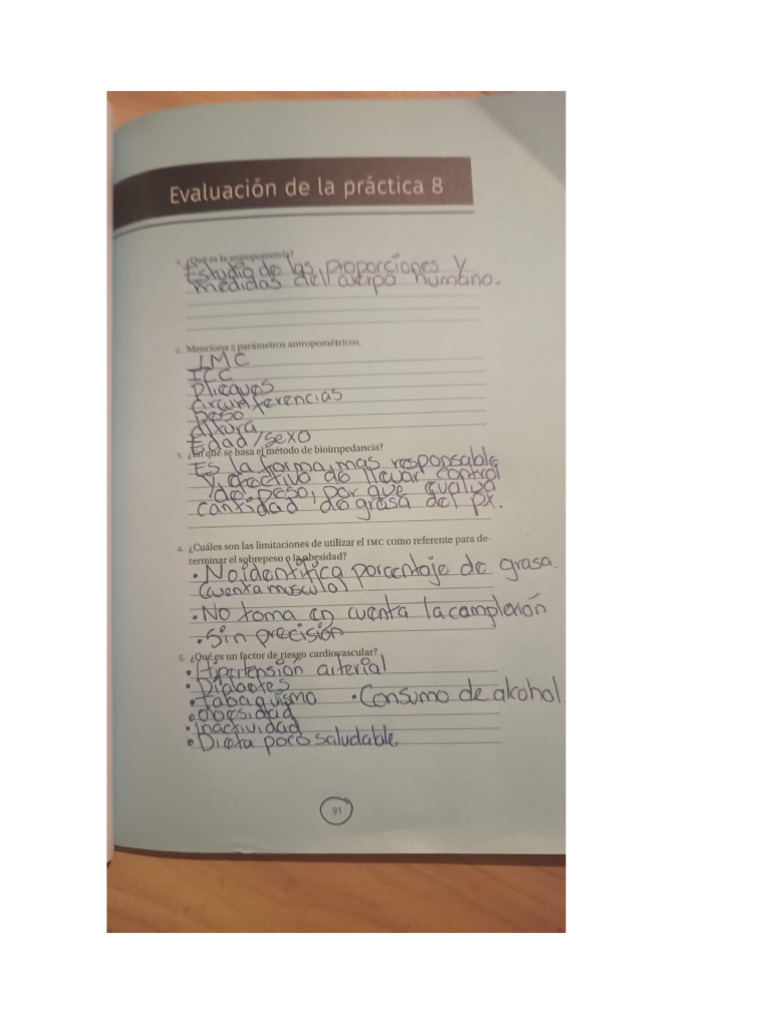 Evaluación de la práctica 8
1. ¿Qué es la antropometría?
Estudio de las proporciones y
medidas del cuerpo humano.
2. Menciona 5 parámetros antropométricos.
IMC
ICC
Plieques
circunferencias
peso
Altura
Edad/sexo
3. ¿En qué se basa el método de bioimpedancia?
Es la forma mas responsable
y efectivo de llevar control
de peso, por que evalua
cantidad de grasa del px.
4. ¿Cuáles son las limitaciones de utilizar el IMC como referente para de-
terminar el sobrepeso o la obesidad?
• No identifica porcentaje de grasa.
(cuenta musculo)
• No toma en cuenta la complexión
• Sin precisión
5. ¿Qué es un factor de riesgo cardiovascular?
• Hipertensión arterial
• Diabetes
• Tabaquismo • Consumo de alcohol.
• Obesidad
• inactividad
• Dieta poco saludable.
91